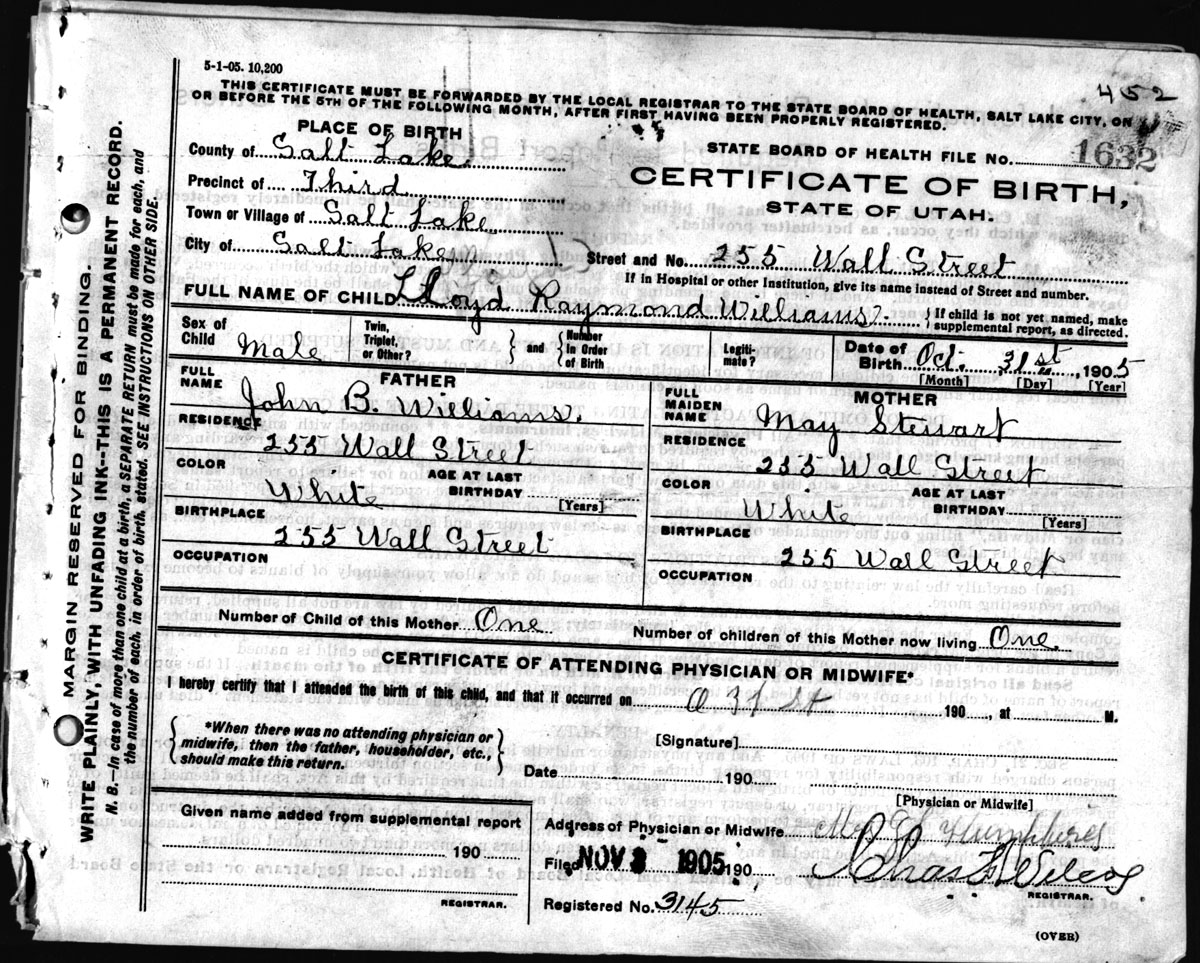 5-1-05. 10,200
452
THIS CERTIFICATE MUST BE FORWARDED BY THE LOCAL REGISTRAR TO THE STATE BOARD OF HEALTH, SALT LAKE CITY, ON
OR BEFORE THE 5TH OF THE FOLLOWING MONTH, AFTER FIRST HAVING BEEN PROPERLY REGISTERED.
PLACE OF BIRTH
County of Salt Lake
STATE BOARD OF HEALTH FILE NO. 1632
Precinct of Third
CERTIFICATE OF BIRTH,
STATE OF UTAH.
Town or Village of Salt Lake
City of Salt Lake
Street and No. 255 Wall Street
If in Hospital or other Institution, give its name instead of Street and number.
FULL NAME OF CHILD Lloyd Raymond Williams
{If child is not yet named, make supplemental report, as directed.
Sex of Child Male
Twin, Triplet, or Other? } and { Number in Order of Birth
Legitimate?
Date of Birth Oct. 31st, 1905
[Month] [Day] [Year]
FATHER
FULL NAME John B. Williams.
RESIDENCE 255 Wall Street
COLOR White
AGE AT LAST BIRTHDAY [Years]
BIRTHPLACE 255 Wall Street
OCCUPATION
MOTHER
FULL MAIDEN NAME May Stewart
RESIDENCE 255 Wall Street
COLOR White
AGE AT LAST BIRTHDAY [Years]
BIRTHPLACE 255 Wall Street
OCCUPATION
Number of Child of this Mother One
Number of children of this Mother now living One.
CERTIFICATE OF ATTENDING PHYSICIAN OR MIDWIFE*
I hereby certify that I attended the birth of this child, and that it occurred on O 31 St 190, at M.
{*When there was no attending physician or
midwife, then the father, householder, etc.,
should make this return.}
[Signature]
Date 190
[Physician or Midwife]
Given name added from supplemental report
190
REGISTRAR.
Address of Physician or Midwife Humphres
Filed NOV 3 1905 190
Chas
REGISTRAR.
Registered No. 3145
(OVER)
MARGIN RESERVED FOR BINDING.
WRITE PLAINLY, WITH UNFADING INK--THIS IS A PERMANENT RECORD.
N. B.—In case of more than one child at a birth, a SEPARATE RETURN must be made for each, and
the number of each, in order of birth, stated. SEE INSTRUCTIONS ON OTHER SIDE.